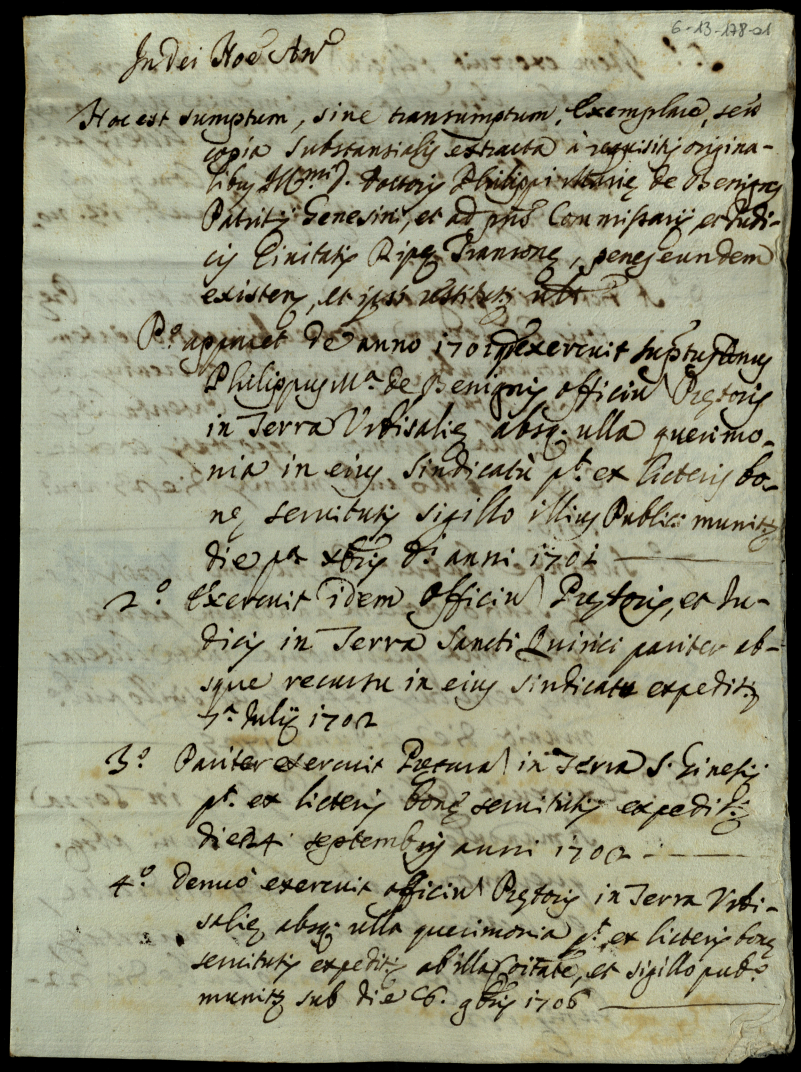 6-13-178-01
In Dei Noe Am̃
Hoc est sumptum, sive transumptum, Exemplar, seu
copia substantialis extracta à requisitis origina-
libus Ill.mi D. Doctoris Philippi Marię de Benignis
Patritij Genesini, et ad pñs Commissarij et Judi-
cis Civitatis Ripę Transonę, penes eundem
existens, et ipsi restitutis
P.º apparet de anno 1701 exercuit supt.us Dnus
Philippus M.a de Benignis officiũ Pretoris
in Terra Urbisalię absq. ulla querimo-
nia in eius sindicatũ pt. ex licteris bo-
nę servitutis sigillo illius Publici munitis
die p.a xbris d.i anni 1701
2.º Exercuit idem officiũ Pretoris, et Ju-
dicis in Terra Sancti Quirici pariter ab-
sque recursu in eius sindicatu expeditis
7.a Julij 1702
3.º Pariter exercuit Preturã in Terra S. Ginesij
pt. ex licteris bonę servitutis expeditis
die 24 septembris anni 1702
4.º Denuò exercuit officiũ Pretoris in Terra Urbi-
salię absq. ulla querimonia pt. ex licteris bonę
servitutis expeditis ab illa Coitate, et sigillo pub.º
munitis sub die 26. 9bris 1706